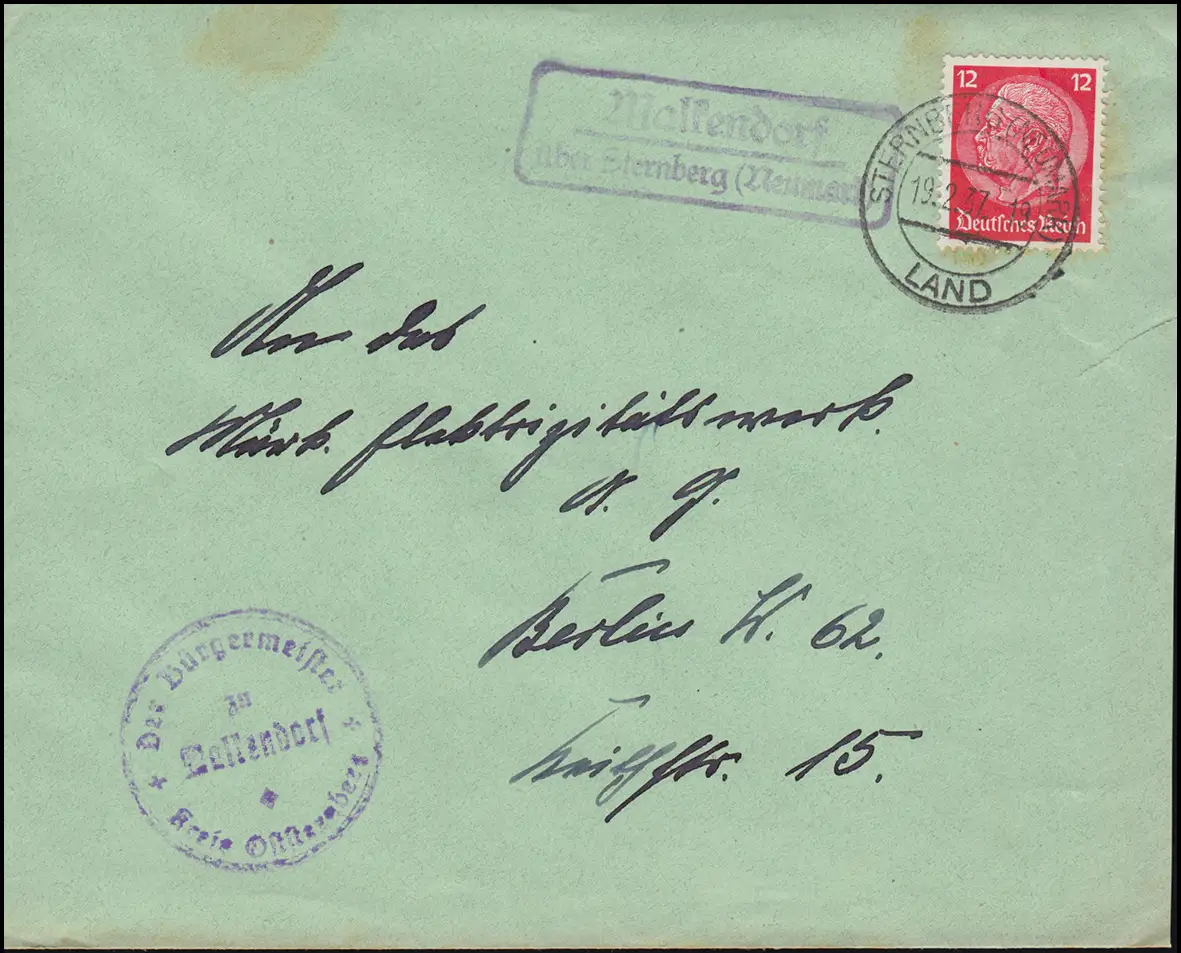 Mallendorf
über Sternberg (Neumark)
12 12
Deutsches Reich
STERNBERG (NEUMARK)
19.2.37
LAND
An das
Märk. Elektrizitätswerk.
A. G.
Berlin W. 62.
Keithstr. 15.
Der Bürgermeister
zu
Mallendorf
Kreis Oststernberg